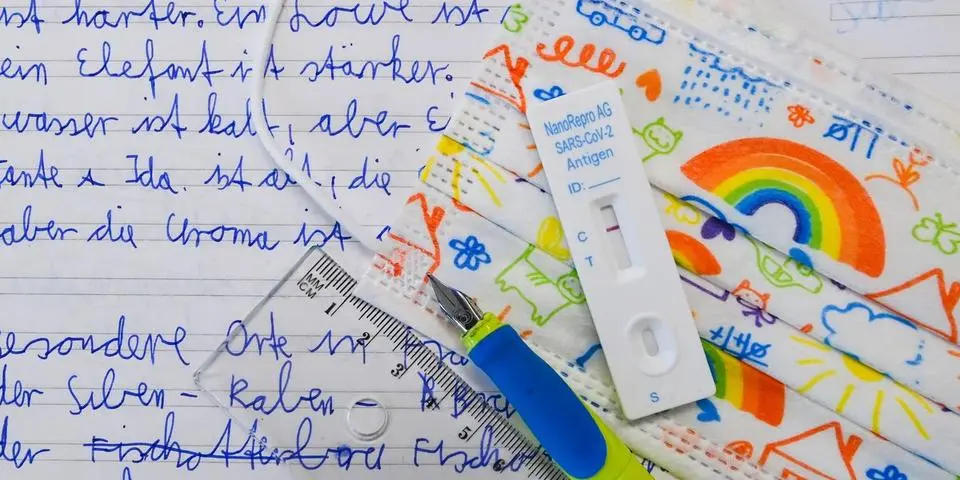 ist härter. Ein Löwe ist
ein Elefant ist stärker.
wasser ist kalt, aber
Tante Ida ist alt, die
aber die Uroma ist
esondere Orte in
der Silben -
Raben -
der Fischotterbau Fischo
NanoRepro AG
SARS-CoV-2
Antigen
ID:
C
T
S
MM
CM
1
2
3
4
5
6